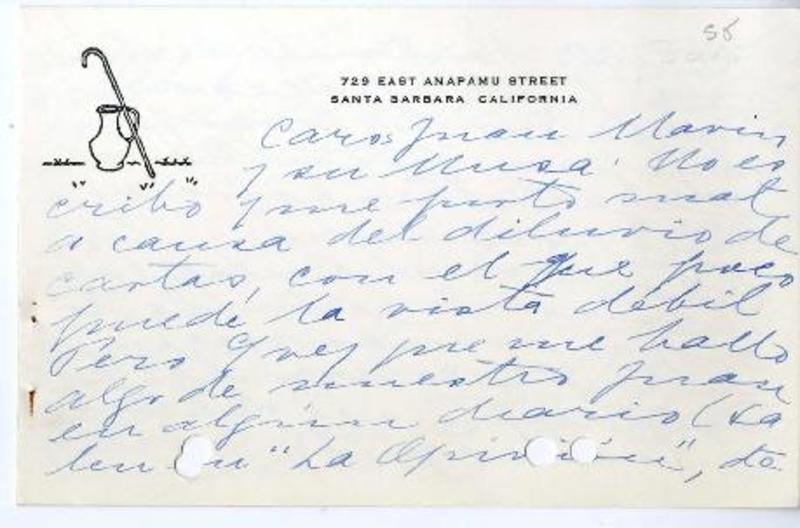 58
729 EAST ANAPAMU STREET
SANTA BARBARA CALIFORNIA
Caros Juan Marin
y su Musa: No es
cribo y me porto mal
a causa del diluvio de
cartas, con el que poco
puede la vista débil
Pero que me hallo
algo de nuestro Juan
en algún diario (sa
len en "La Opinión",